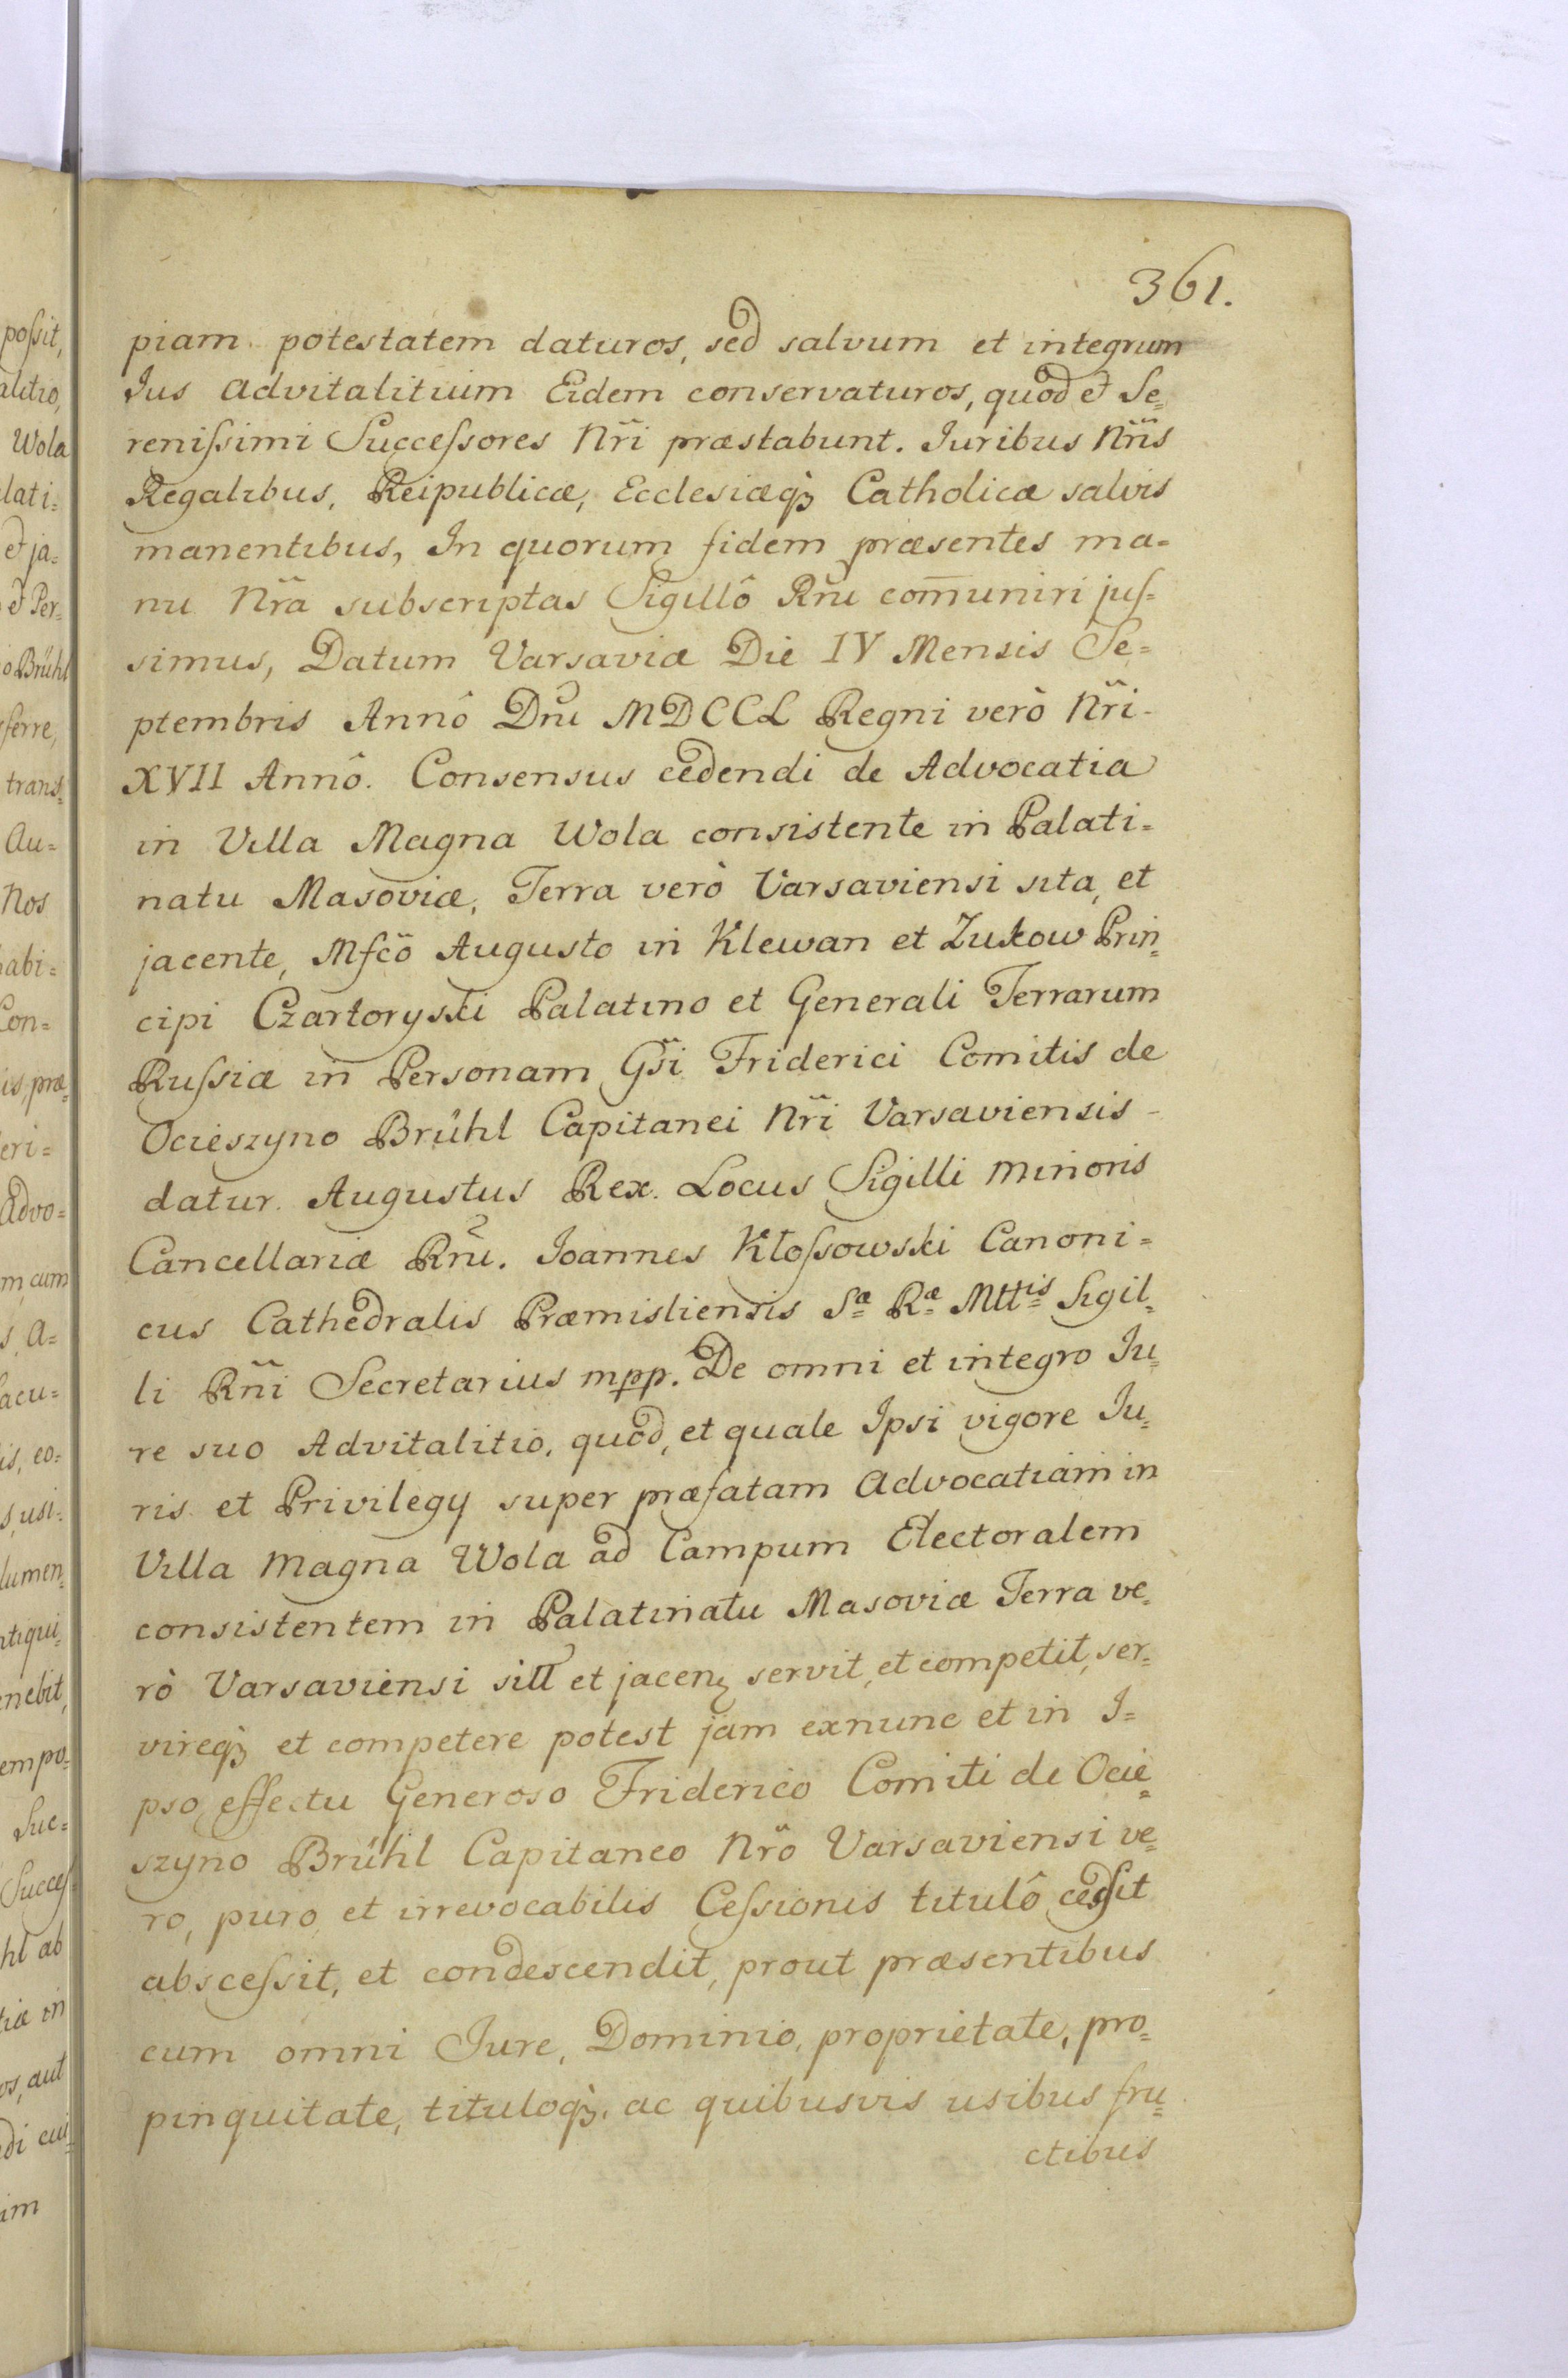 361.
piam potestatem daturos, sed salvum et integrum
Jus advitalitium Eidem conservaturos, quod et Se=
reniſsimi Succeſsores Nr̃i præstabunt. Juribus Nr̃is
Regalibus, Reipublicæ, Ecclesiæqꝫ Catholicæ salvis
manentibus, In quorum fidem præsentes ma=
nu Nr̃a subscriptas Sigillô Rñi com̃uniri juſ=
simus, Datum Varsaviæ Die IV Mensis Se=
ptembris Annô Dñi MDCCL Regni verò Nr̃i
XVII Annô. Consensus cedendi de Advocatia
in Villa Magna Wola consistente in Palati=
natu Masoviæ, Terra verò Varsaviensi sita, et
jacente, Mfcõ Augusto in Klewan et Zukow Prin=
cipi Czartoryski Palatino et Generali Terrarum
Ruſsiæ in Personam Gs̃i Friderici Comitis de
Ocieszyno Brühl Capitanei Nr̃i Varsaviensis
datur. Augustus Rex. Locus Sigilli minoris
Cancellariæ Rñi. Joannes Kłoſsowski Canoni=
cus Cathedralis Præmisliensis Sæ Ræ Mttis Sigil=
li Rñi Secretarius mpp. De omni et integro Ju=
re suo Advitalitio, quod, et quale Ipsi vigore Ju=
ris et Privilegy super præfatam Advocatiam in
Villa Magna Wola ad Campum Electoralem
consistentem in Palatinatu Masoviæ Terra ve=
rò Varsaviensi sitt et jacenꝫ servit, et competit, ser=
vireqꝫ et competere potest jam exnunc et in I=
pso effectu Generoso Friderico Comiti de Ocie=
szyno Brühl Capitaneo Nr̃o Varsaviensi ve=
ro, puro, et irrevocabilis Ceſsionis titulô ceſsit
absceſsit, et condescendit, prout præsentibus
cum omni Jure, Dominio, proprietate, pro=
pinquitate, tituloqꝫ, ac quibusvis usibus fru=
ctibus
poſsit,
alitio,
Wola
lati=
et ja=
et Per=
o Brühl
sferre,
trans=
Au=
Nos
habi=
Con=
is, præ=
eri=
Advo=
m, cum
s, A=
acu=
is, eo=
s, usi=
lumen=
ntiqui=
enebit,
empo=
Suc=
Succeſ=
hl ab
tiæ in
os, aut
di cui=
im